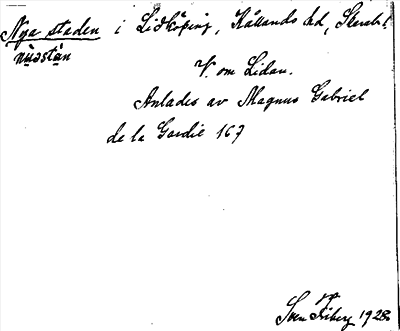 Nya staden i Lidköping, Kållands hd, Skarab. l.
nỳastàn
V. om Lidan.
Anlades av Magnus Gabriel
de la Gardie 167
Sven Friberg 1928